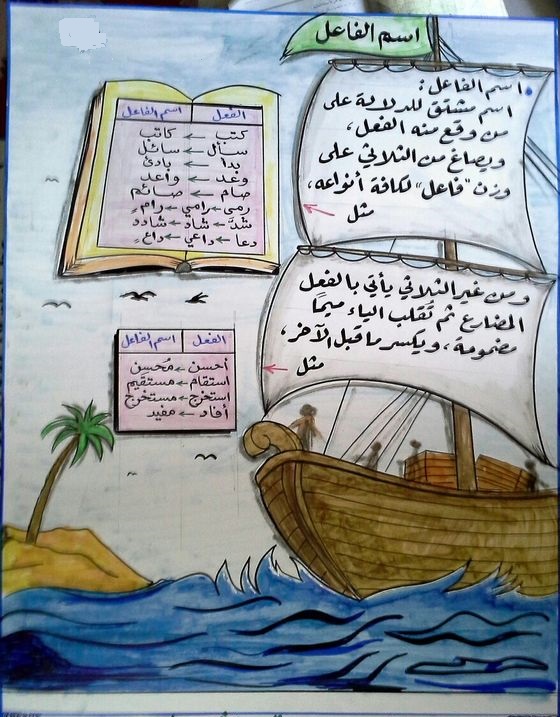 اسم الفاعل
اسم الفاعل:
اسم مشتق للدلالة على
من وقع منه الفعل،
ويصاغ من الثلاثي على
وزن "فاعل" لكافة أنواعه،
مثل
الفعل اسم الفاعل
كتب ← كاتب
سأل ← سائل
بدا ← بادئ
وعد ← واعد
صام ← صائم
رمى ← رامي ← رامٍ
شدَّ ← شادّ ← شادد
دعا ← داعي ← داعٍ
ومن غير الثلاثي يأتي بالفعل
المضارع ثم تُقلب الياء ميمًا
مضمومة، ويكسر ما قبل الآخر،
مثل
الفعل اسم الفاعل
أحسن ← مُحسِن
استقام ← مستقيم
استخرج ← مستخرج
أفاد ← مفيد